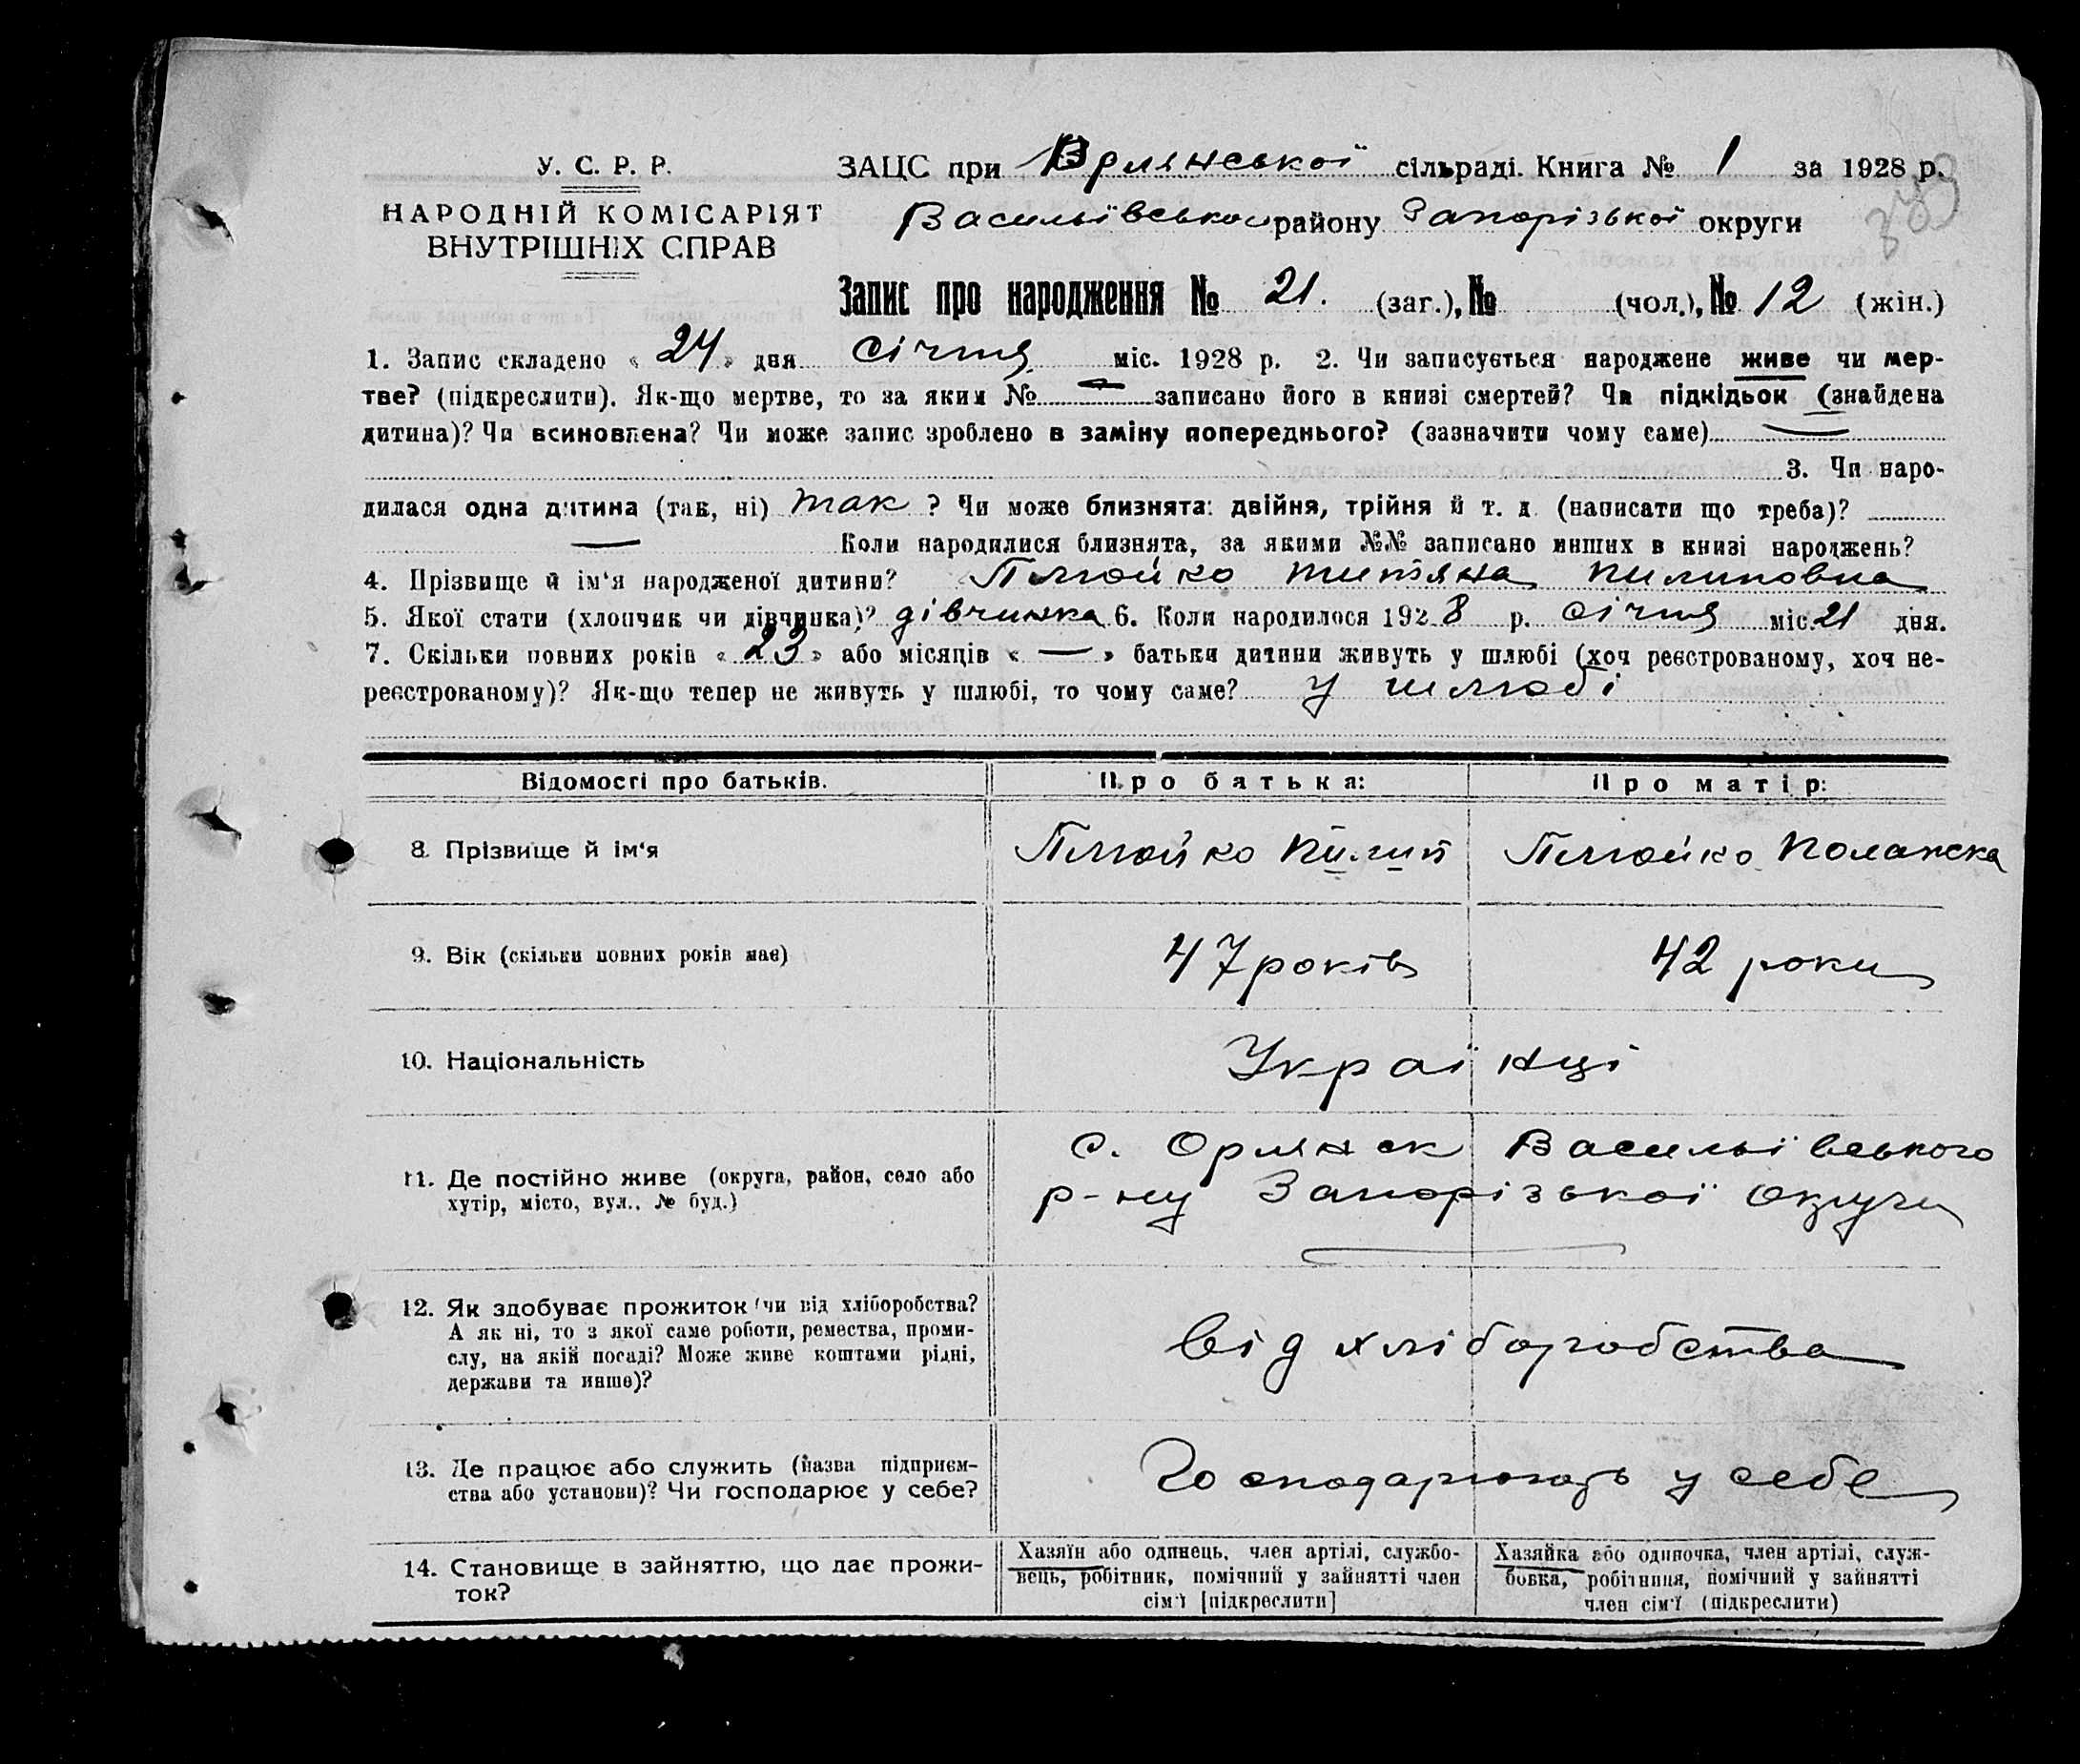 У. С. Р. Р.
НАРОДНІЙ КОМІСАРІЯТ
ВНУТРІШНІХ СПРАВ
ЗАЦС при Орлянської сільраді. Книга № 1 за 1928 р.
389
Васильївського району Запорізької округи
Запис про народження № 21. (заг.), № (чол.), № 12 (жін.)
1. Запис складено « 24 » дня січня міс. 1928 р. 2. Чи записується народжене живе чи мер-
тве? (підкреслити). Як-що мертве, то за яким № — записано його в книзі смертей? Чи підкідьок (знайдена
дитина)? Чи всиновлена? Чи може запис зроблено в заміну попереднього? (зазначити чому саме) —
3. Чи наро-
дилася одна дитина (так, ні) так ? Чи може близнята: двійня, трійня й т. д. (написати що треба)?
— Коли народилися близнята, за якими №№ записано инших в книзі народжень?
4. Прізвище й ім'я народженої дитини? Плюйко Титяна Пилиповна
5. Якої стати (хлопчик чи дівчинка)? дівчинка 6. Коли народилося 1928 р. січня міс. 21 дня.
7. Скільки повних років « 23 » або місяців « — » батьки дитини живуть у шлюбі (хоч реєстрованому, хоч не-
реєстрованому)? Як-що тепер не живуть у шлюбі, то чому саме? у шлюбі
Відомості про батьків. Про батька: Про матір:
8. Прізвище й ім'я Плюйко Пилип Плюйко Поланска
9. Вік (скільки повних років має) 47 років 42 роки
10. Національність Українці
11. Де постійно живе (округа, район, село або
хутір, місто, вул., № буд.)
с. Орлянск Васильївського
р-ну Запорізької округи
12. Як здобуває прожиток (чи від хліборобства?
А як ні, то з якої саме роботи, ремества, проми-
слу, на якій посаді? Може живе коштами рідні,
держави та инше)?
від хліборобства
13. Де працює або служить (назва підприєм-
ства або установи)? Чи господарює у себе?
Господарюють у себе
14. Становище в зайняттю, що дає прожи-
ток?
Хазяїн або одинець, член артілі, службо-
вець, робітник, помічний у зайнятті член
сім'ї [підкреслити]
Хазяйка або одиночка, член артілі, служ-
бовка, робітниця, помічний у зайнятті
член сім'ї (підкреслити)